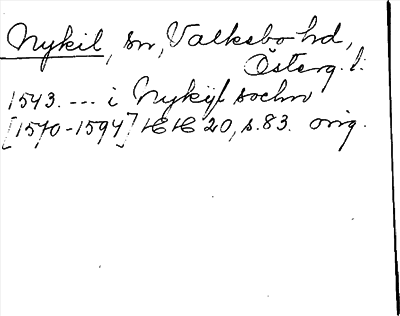 Nykil, sn, Valkebo hd,
Österg. l.
1543. --- i Nykijl sochn
[1570-1594] HH 20, s. 83. orig.